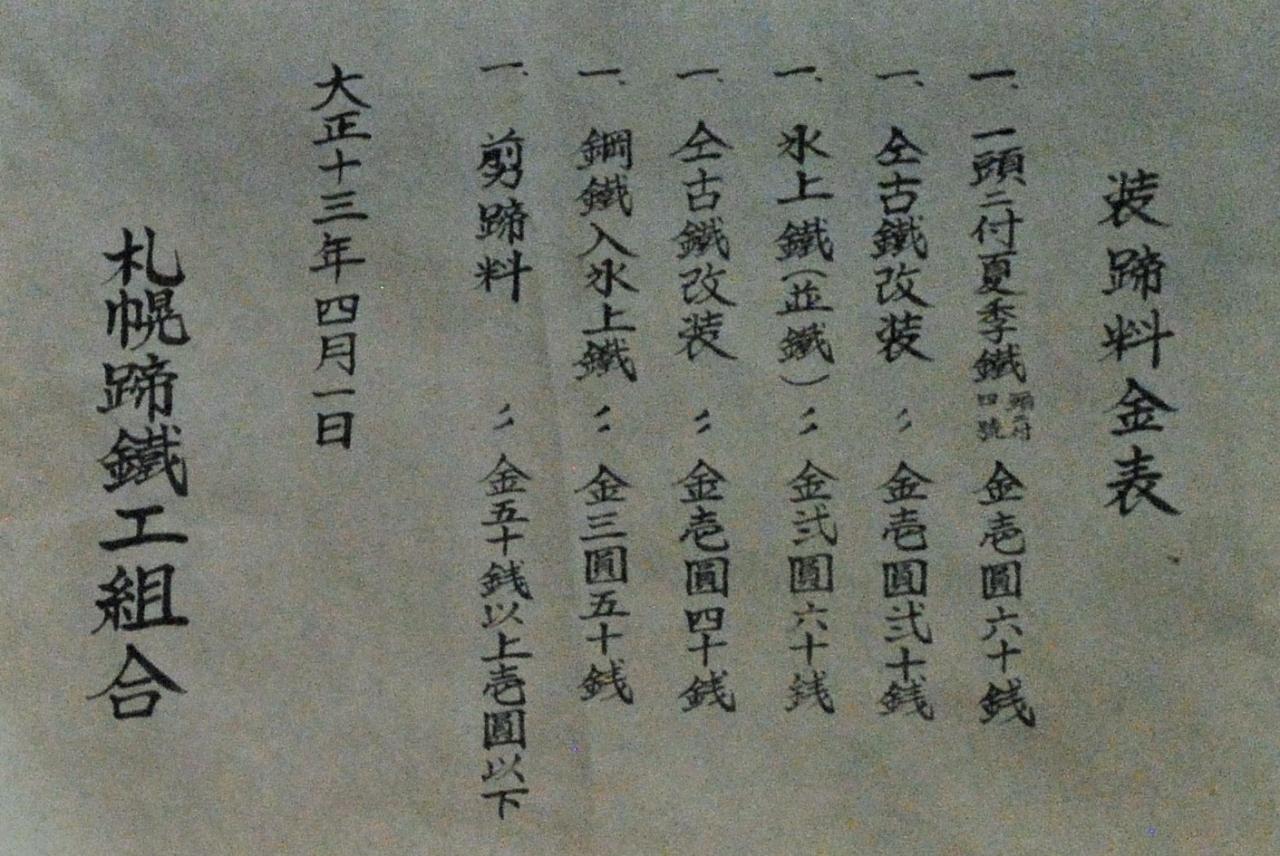 装蹄料金表
一、一頭ニ付夏季鐵 四號 金壱圓六十銭
一、仝古鐵改装 〃 金壱圓弐十銭
一、氷上鐵(並鐵) 〃 金弐圓六十銭
一、仝古鐵改装 〃 金壱圓四十銭
一、鋼鐵入氷上鐵 〃 金三圓五十銭
一、剪蹄料 〃 金五十銭以上壱圓以下
大正十三年四月一日
札幌蹄鐵工組合